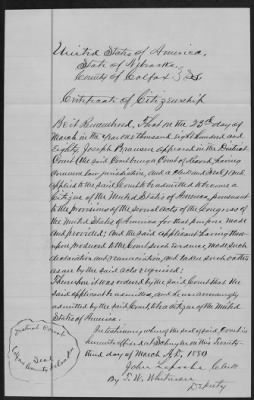 United States of America,
State of Nebraska
County of Colfax } SS.
Certificate of Citizenship
Be it Remembered, That on the 22nd day of
March in the Year One thousand eight hundred and
Eighty, Joseph appeared in the District
Court (the said Court being a Court of Record, having
common law jurisdiction, and a Clerk and Seal) and
applied to the said Court to be admitted to become a
Citizen of the United States of America, pursuant
to the provisions of the several acts of the Congress of
the United States of America for that purpose made
and provided: And the said applicant having there-
upon produced to the Court such evidence, made such
declaration and renunciation, and taken such oaths
as are by the said acts required:
Thereupon it was ordered by the said Court that the
said applicant be admitted, and he was accordingly
admitted by the said Court, to be a citizen of the United
States of America.
In testimony whereof the seal of said Court is
hereunto affixed at Schuyler on this twenty-
second day of March A.D. 1880
John Clerk
By S. W. Deputy
District Court
Seal
Colfax County Nebraska